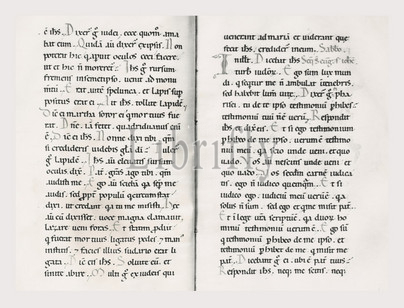 ē ih̅s. Dixer̅ g̊ iudei, ecce quom̊ ama
bat eum. Quidā aū dixer̅ ex ipsis. Non
poterit hic q̇ aperuit oculos ceci facere
ut et hic n̄ moreret̉. Ih̅s g̊ rursum
fremens in semetipso, uenit ad monu
mtū. Erat aut̄ spelunca. et lapis sup
positus erat ei. Ait ih̅s. tollite lapidē.
Dic̄ ei martha soror eỉ qui mortuus fue
rat. Dn̄e. iā fetet. quatriduanus ē
ē. Dic̄ ei ih̅s. Nonne dixi tibi. qm̄
si credideris uidebis glām dī. tuler̅
g̊ lapidē. Ih̅s aū eleuatis sursum
oculis dix̄. Pat̄. grās ago tibi. qm̄
audisti me. Ego aū sciebā qa semp me
audis. sed ppt̄ populū q̇ circumstat
dixi. ut credant qa tu me misisti. Hec
aū cū dixisset. uoce magna clamauit.
Lazare ueni foras. Et statim pdiit
q̇ fuerat mortuus ligatus pedes ⁊ man̉
institis. ⁊ facies illius sudario erat li
gata. Dic̄ eis ih̅s. Soluite eū. et
sinite abire. Multi g̊ ex iudeis qui
uenerant ad mariā et uiderant que
fecit ih̅s. crediderunt in eum. Sabbo.
In illt. Dicebat ih̅s
turbis iudeor̅. Ego sum lux mun
di. q̇ sequit̉ me n̄ ambulat in tenebris.
sed habebit lum̄ uite. Dixer̅ g̊ pha
risei. tu de te ipso testimoniū phibes.
testimoniū tuū n̄ ē uerū. Respondit
ih̅s et dix̄ eis. Et si ego testimonium
phibeo de me ipso. uerum ē testimo
niū meū. qa scio unde ueni. et quo
uado. Vos aū nescitis unde ueni et
quo uado. Vos scdm̄ carnē iudica
tis. ego n̄ iudico quenquā. Et si
iudico ego. iudiciū meū uerū ē. qa
solus n̄ sum. sed ego et qui misit me pat̄.
Et in lege urā scriptū ē. qa duor̅ ho
minū testimoniū uerum ē. Ego sū
q̇ testimoniū phibeo de me ipso. et
testimoniū phibet de me q̇ misit me
pat̄. Dicebant g̊ ei. ubi ē pat̄ tuus.
Respondit ih̅s. neq̇ me scitis. neq̇
Librifly